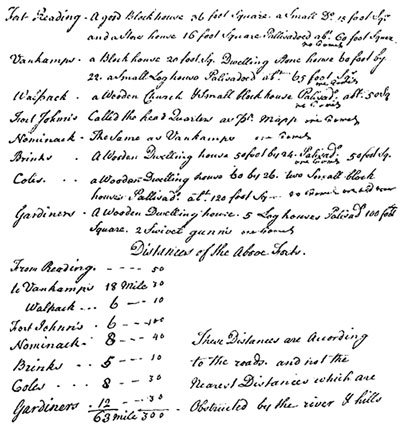 Fort Reading. A good Block house 36 foot Square. a Small Do. 15 foot Sqr.
and a Stone house 16 foot Square Pallisadoed abt. 60 foot Square.
no Cannon
Vankamps. a Block house 20 foot Sq. Dwelling Stone house 60 foot by
22. a Small Log house Pallisadoed abt. 65 foot Sqr.
no Cannon
Walpack. a Wooden Church & Small block house Palisad. abt. 50 Sq
no Cannon
Fort John's Called the head Quarters as Pr. Mapp no Cannon
Nominack. The Same as Vankamps no Cannon
Brinks. A Wooden Dwelling house 50 foot by 24. Palisad. 50 foot Sq.
no Cannon
Coles. a Wooden Dwelling house 60 by 26. two Small block
houses Pallisad. abt. 120 foot Sq. no Cannon
Gardiners. A Wooden Dwelling house. 5 Log houses Palisad. 100 foot
Square. 2 Swivet gunns no Cannon
Distances of the Above Forts.
From Reading. - - - - 50
to Vankamps 18 Mile 30
Walpack ... 6 - - 10
Fort Johnns. 6 - - - 100
Nominack. - 8 - - - 40
Brinks .. - 5 - - - 10
Coles ... - 8 - - - 30
Gardiners. 12 - - . 30
63 Mile 300 .
These Distances are According
to the roads. and not the
Nearest Distances which are
Obstructed by the river & hills